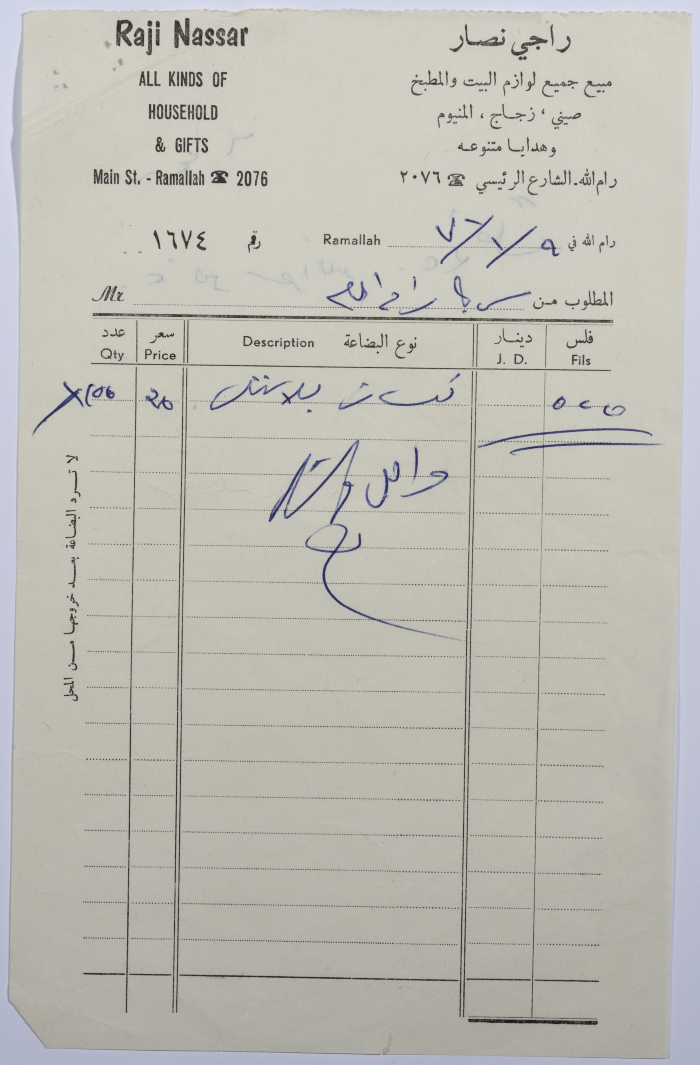 Raji Nassar
راجي نصار
ALL KINDS OF
مبيع جميع لوازم البيت والمطبخ
HOUSEHOLD
صيني ، زجاج ، المنيوم
& GIFTS
وهدايا متنوعه
Main St. - Ramallah ☎ 2076
رام الله۔الشارع الرئيسي ☎ ٢٠٧٦
رام الله في ٧٦/١/٩ Ramallah
رقم ١٦٧٤
المطلوب من رام الله Mr
فلس دينار نوع البضاعة Description سعر عدد
Fils J. D. Price Qty
كاسات بلاستيك
لا تــرد البضاعة بعــد خروجها مــن المحل